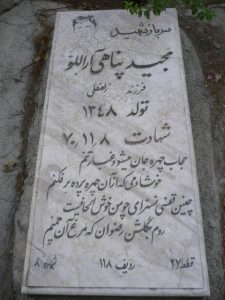 سرباز شهید
مجید پناهی آرالو
فرزند
تولد ۱۳۴۸
شهادت ۷۰/۱۱/۸
حجاب چهره جان میشود غبار تنم
خوشا دمی که ازان چهره پرده برفکنم
چنین قفس نه سزای چو من خوش الحانیست
روم بگلشن رضوان که مرغ آن چمنم
قطعه ۲۷ ردیف ۱۱۸ شماره ۸